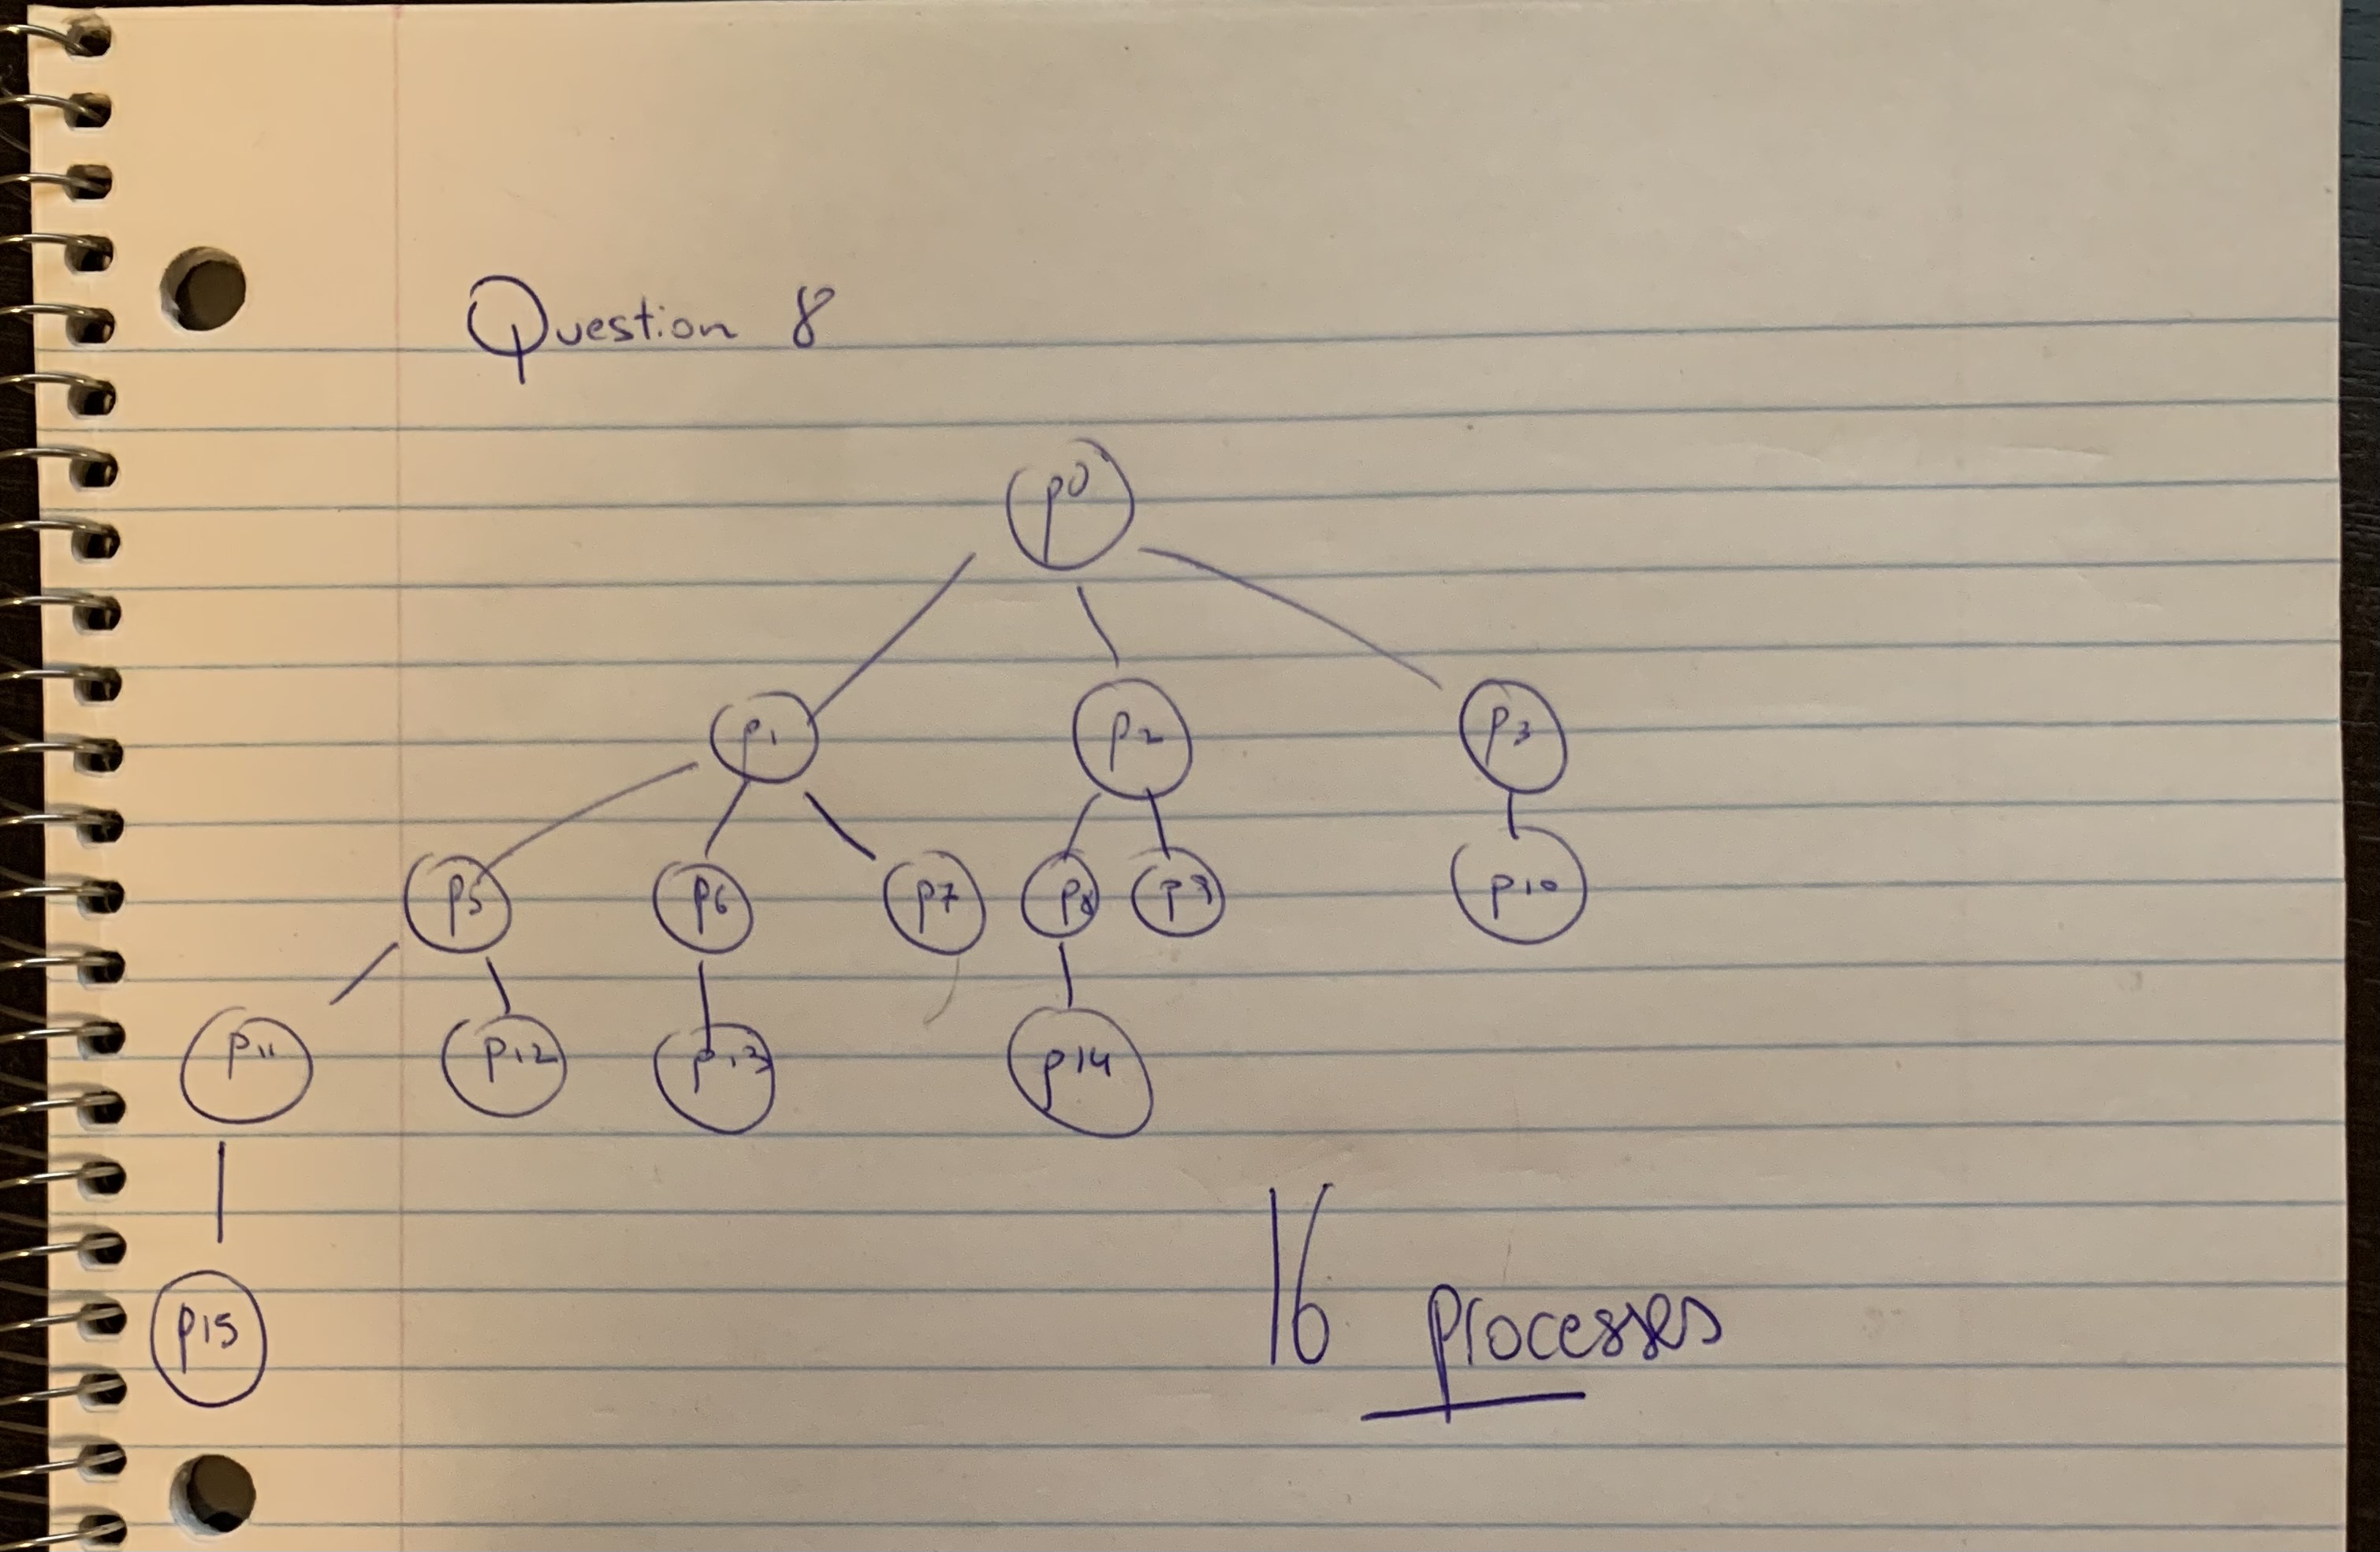 Question 8
p0
p1 p2 p3
p5 p6 p7 p8 p9 p10
p11 p12 p13 p14
p15
16 processes